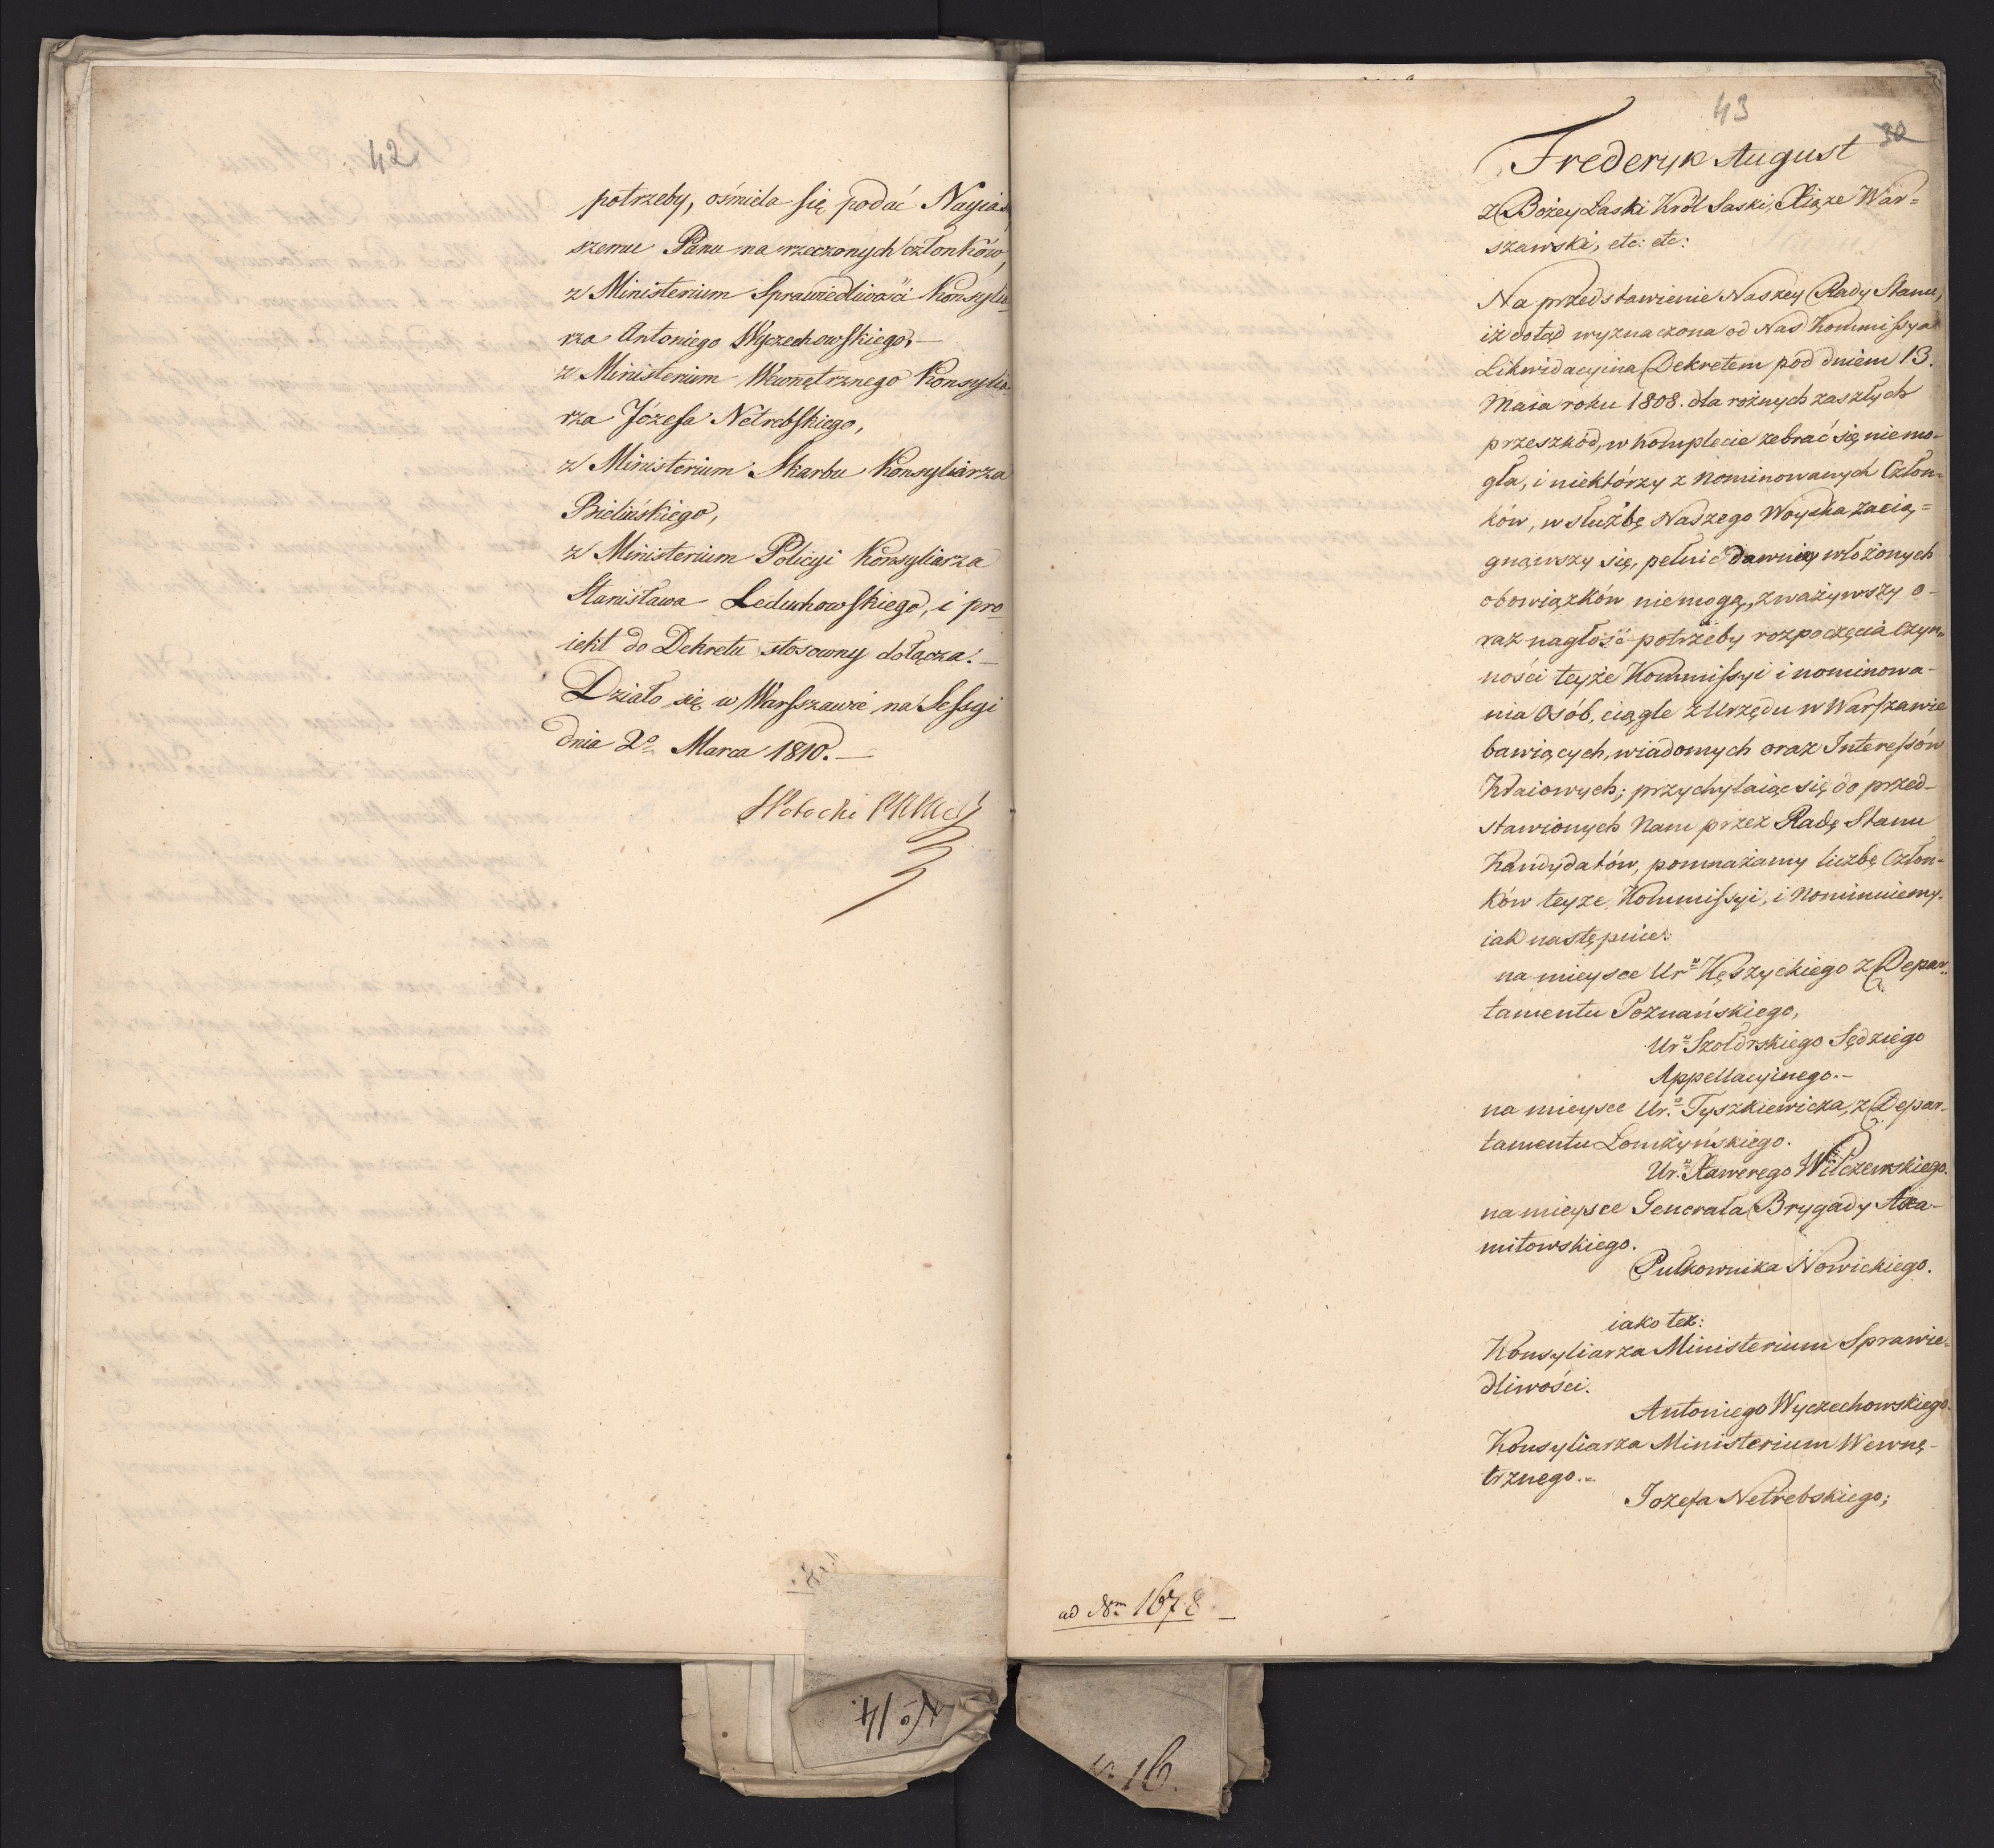 42
potrzeby, ośmiela się podać Nayiaś
szemu Panu na rzeczonych członków,
z Ministerium Sprawiedliwości Konsylia
rza Antoniego Wyczechowskiego,—
z Ministerium Wewnętrznego Konsylia
rza Józefa Netrebskiego,
z Ministerium Skarbu Konsyliarza
Bielińskiego,
z Ministerium Policyi Konsyliarza
Stanisława Leduchowskiego, i pro
iekt do Dekretu stosowny dołącza.—
Działo się w Warszawie na Sessyi
dnia 2º Marca 1810.—
43
30
Frederyk August
z Bożey Łaski Król Saski, Xiąże War=
szawski, etc: etc:
Na przedstawienie Naszey Rady Stanu,
iż dotąd wyznaczona od Nas Kommissya
Likwidacyina Dekretem pod dniem 13.
Maia roku 1808. dla rożnych zaszłych
przeszkód, w komplecie zebrać się niemo-
gła, i niektórzy z nominowanych Człon-
ków, w służbę Naszego Woyska zacią=
gnąwszy się, pełnić dawniey włożonych
obowiązków niemogą, zważywszy o-
raz nagłość potrzeby rozpoczęcia Czyn„
ności teyże Kommissyi i nominowa-
nia Osób, ciągle z Urzędu w Warszawie
bawiących, wiadomych oraz Interessów
Kraiowych; przychylaiąc się do przed-
stawionych Nam przez Radę Stanu
Kandydatów, pomnażamy liczbę Człon-
ków teyże Kommissyi, i Nominuiemy.
iak następuie:
na mieysce Urº Kęszyckiego z Depar„
tamentu Poznańskiego,
Urº Szołdrskiego Sędziego
Appellacyinego.—
na mieysce Ur.º Tyszkiewicza, z Depar-
tamentu Łomżyńskiego.
Ur.º Xawerego Wilczewskiego.
na mieysce Generała Brygady Axa-
mitowskiego.
Pułkownika Nowickiego.
iako też:
Konsyliarza Ministerium Sprawie-
dliwości.
Antoniego Wyczechowskiego.
Konsyliarza Ministerium Wewnę-
trznego.—
Jozefa Netrebskiego;
ad Nm 1678.
Nº 14.
16.